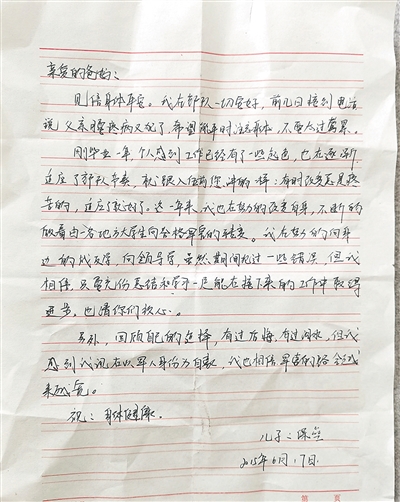 亲爱的爸妈：
见信身体平安。我在部队一切安好，前几日接到电话
说父亲腰疼病又犯了，希望能平时注意身体，不要太过劳累。
刚毕业一年，个人感到工作已经有了一些起色，也在逐渐
适应了部队节奏，就跟入伍前您讲的一样：有时改变总是痛
苦的，适应了就好了。这一年来，我也在努力的改变自身，不断的
做着由一名地方大学生向合格军官的转变。我在努力的向身
边的战友学，向领导学，虽然期间犯过一些错误，但我
相信，只要充分总结和学习一定能在接下来的工作中取得
进步，也请你们放心。
另外，回顾自己的选择，有过后悔，有过泪水，但我
感到我现在以军人身份为自豪，我也相信军营的路会越
来越宽。
祝：身体健康。
儿子：保
2015年6月17日
第 页